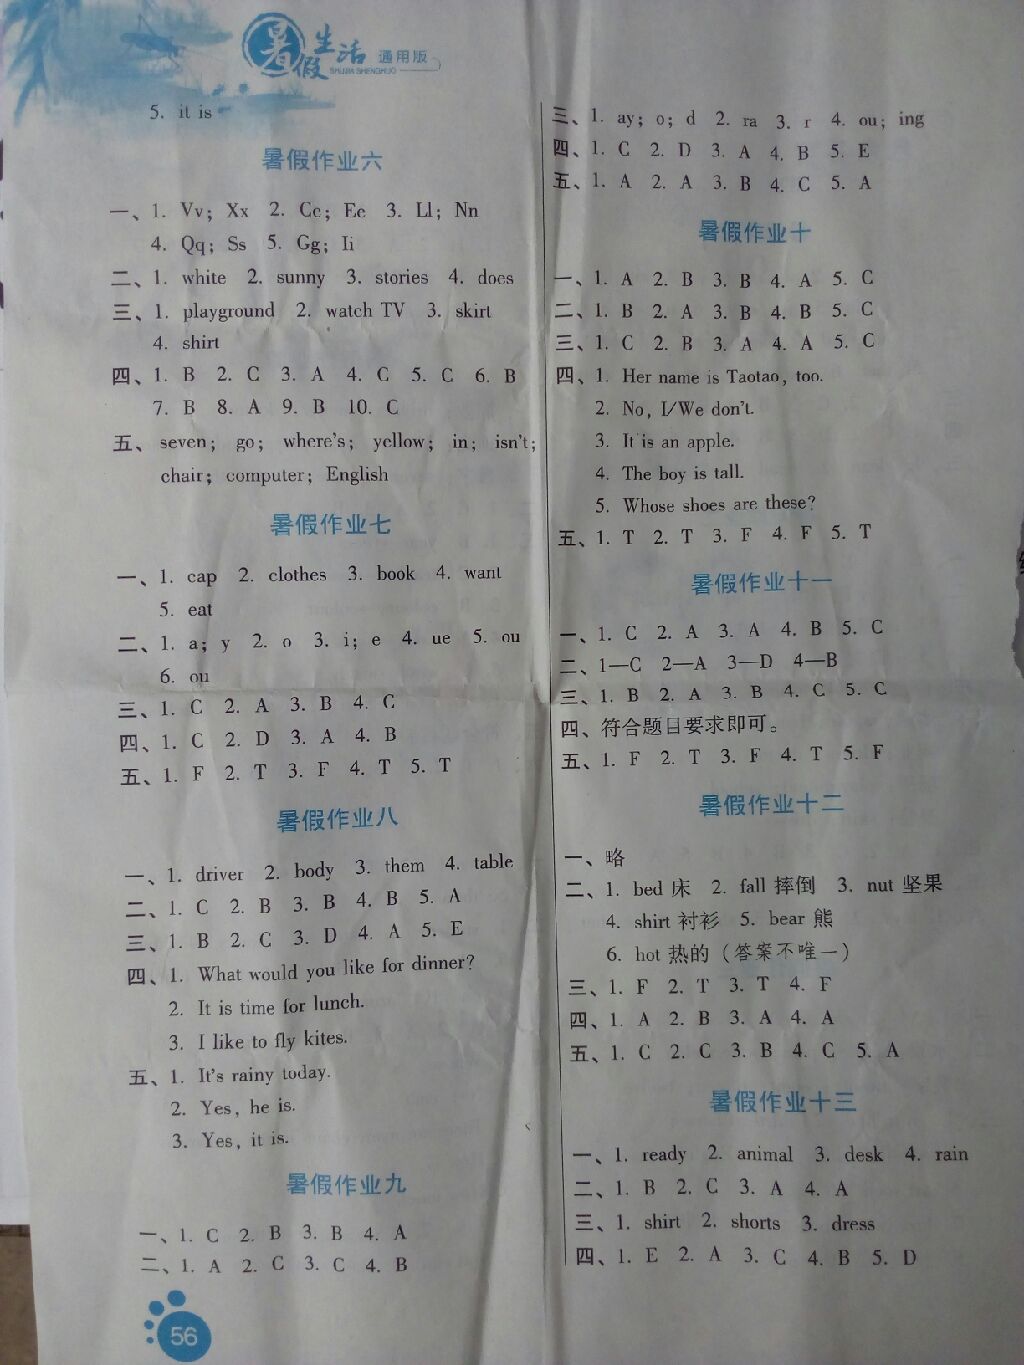 暑假生活 通用版
SHUJIA SHENGHUO
5. it is
暑假作业六
一、1. Vv; Xx 2. Cc; Ee 3. Ll; Nn
4. Qq; Ss 5. Gg; Ii
二、1. white 2. sunny 3. stories 4. does
三、1. playground 2. watch TV 3. skirt
4. shirt
四、1. B 2. C 3. A 4. C 5. C 6. B
7. B 8. A 9. B 10. C
五、seven; go; where's; yellow; in; isn't;
chair; computer; English
暑假作业七
一、1. cap 2. clothes 3. book 4. want
5. eat
二、1. a; y 2. o 3. i; e 4. ue 5. ou
6. ou
三、1. C 2. A 3. B 4. C
四、1. C 2. D 3. A 4. B
五、1. F 2. T 3. F 4. T 5. T
暑假作业八
一、1. driver 2. body 3. them 4. table
二、1. C 2. B 3. B 4. B 5. A
三、1. B 2. C 3. D 4. A 5. E
四、1. What would you like for dinner?
2. It is time for lunch.
3. I like to fly kites.
五、1. It's rainy today.
2. Yes, he is.
3. Yes, it is.
暑假作业九
一、1. C 2. B 3. B 4. A
二、1. A 2. C 3. C 4. B
三、1. ay; o; d 2. ra 3. r 4. ou; ing
四、1. C 2. D 3. A 4. B 5. E
五、1. A 2. A 3. B 4. C 5. A
暑假作业十
一、1. A 2. B 3. B 4. A 5. C
二、1. B 2. A 3. B 4. B 5. C
三、1. C 2. B 3. A 4. A 5. C
四、1. Her name is Taotao, too.
2. No, I/We don't.
3. It is an apple.
4. The boy is tall.
5. Whose shoes are these?
五、1. T 2. T 3. F 4. F 5. T
暑假作业十一
一、1. C 2. A 3. A 4. B 5. C
二、1—C 2—A 3—D 4—B
三、1. B 2. A 3. B 4. C 5. C
四、符合题目要求即可。
五、1. F 2. T 3. F 4. T 5. F
暑假作业十二
一、略
二、1. bed 床 2. fall 摔倒 3. nut 坚果
4. shirt 衬衫 5. bear 熊
6. hot 热的（答案不唯一）
三、1. F 2. T 3. T 4. F
四、1. A 2. B 3. A 4. A
五、1. C 2. C 3. B 4. C 5. A
暑假作业十三
一、1. ready 2. animal 3. desk 4. rain
二、1. B 2. C 3. A 4. A
三、1. shirt 2. shorts 3. dress
四、1. E 2. A 3. C 4. B 5. D
56